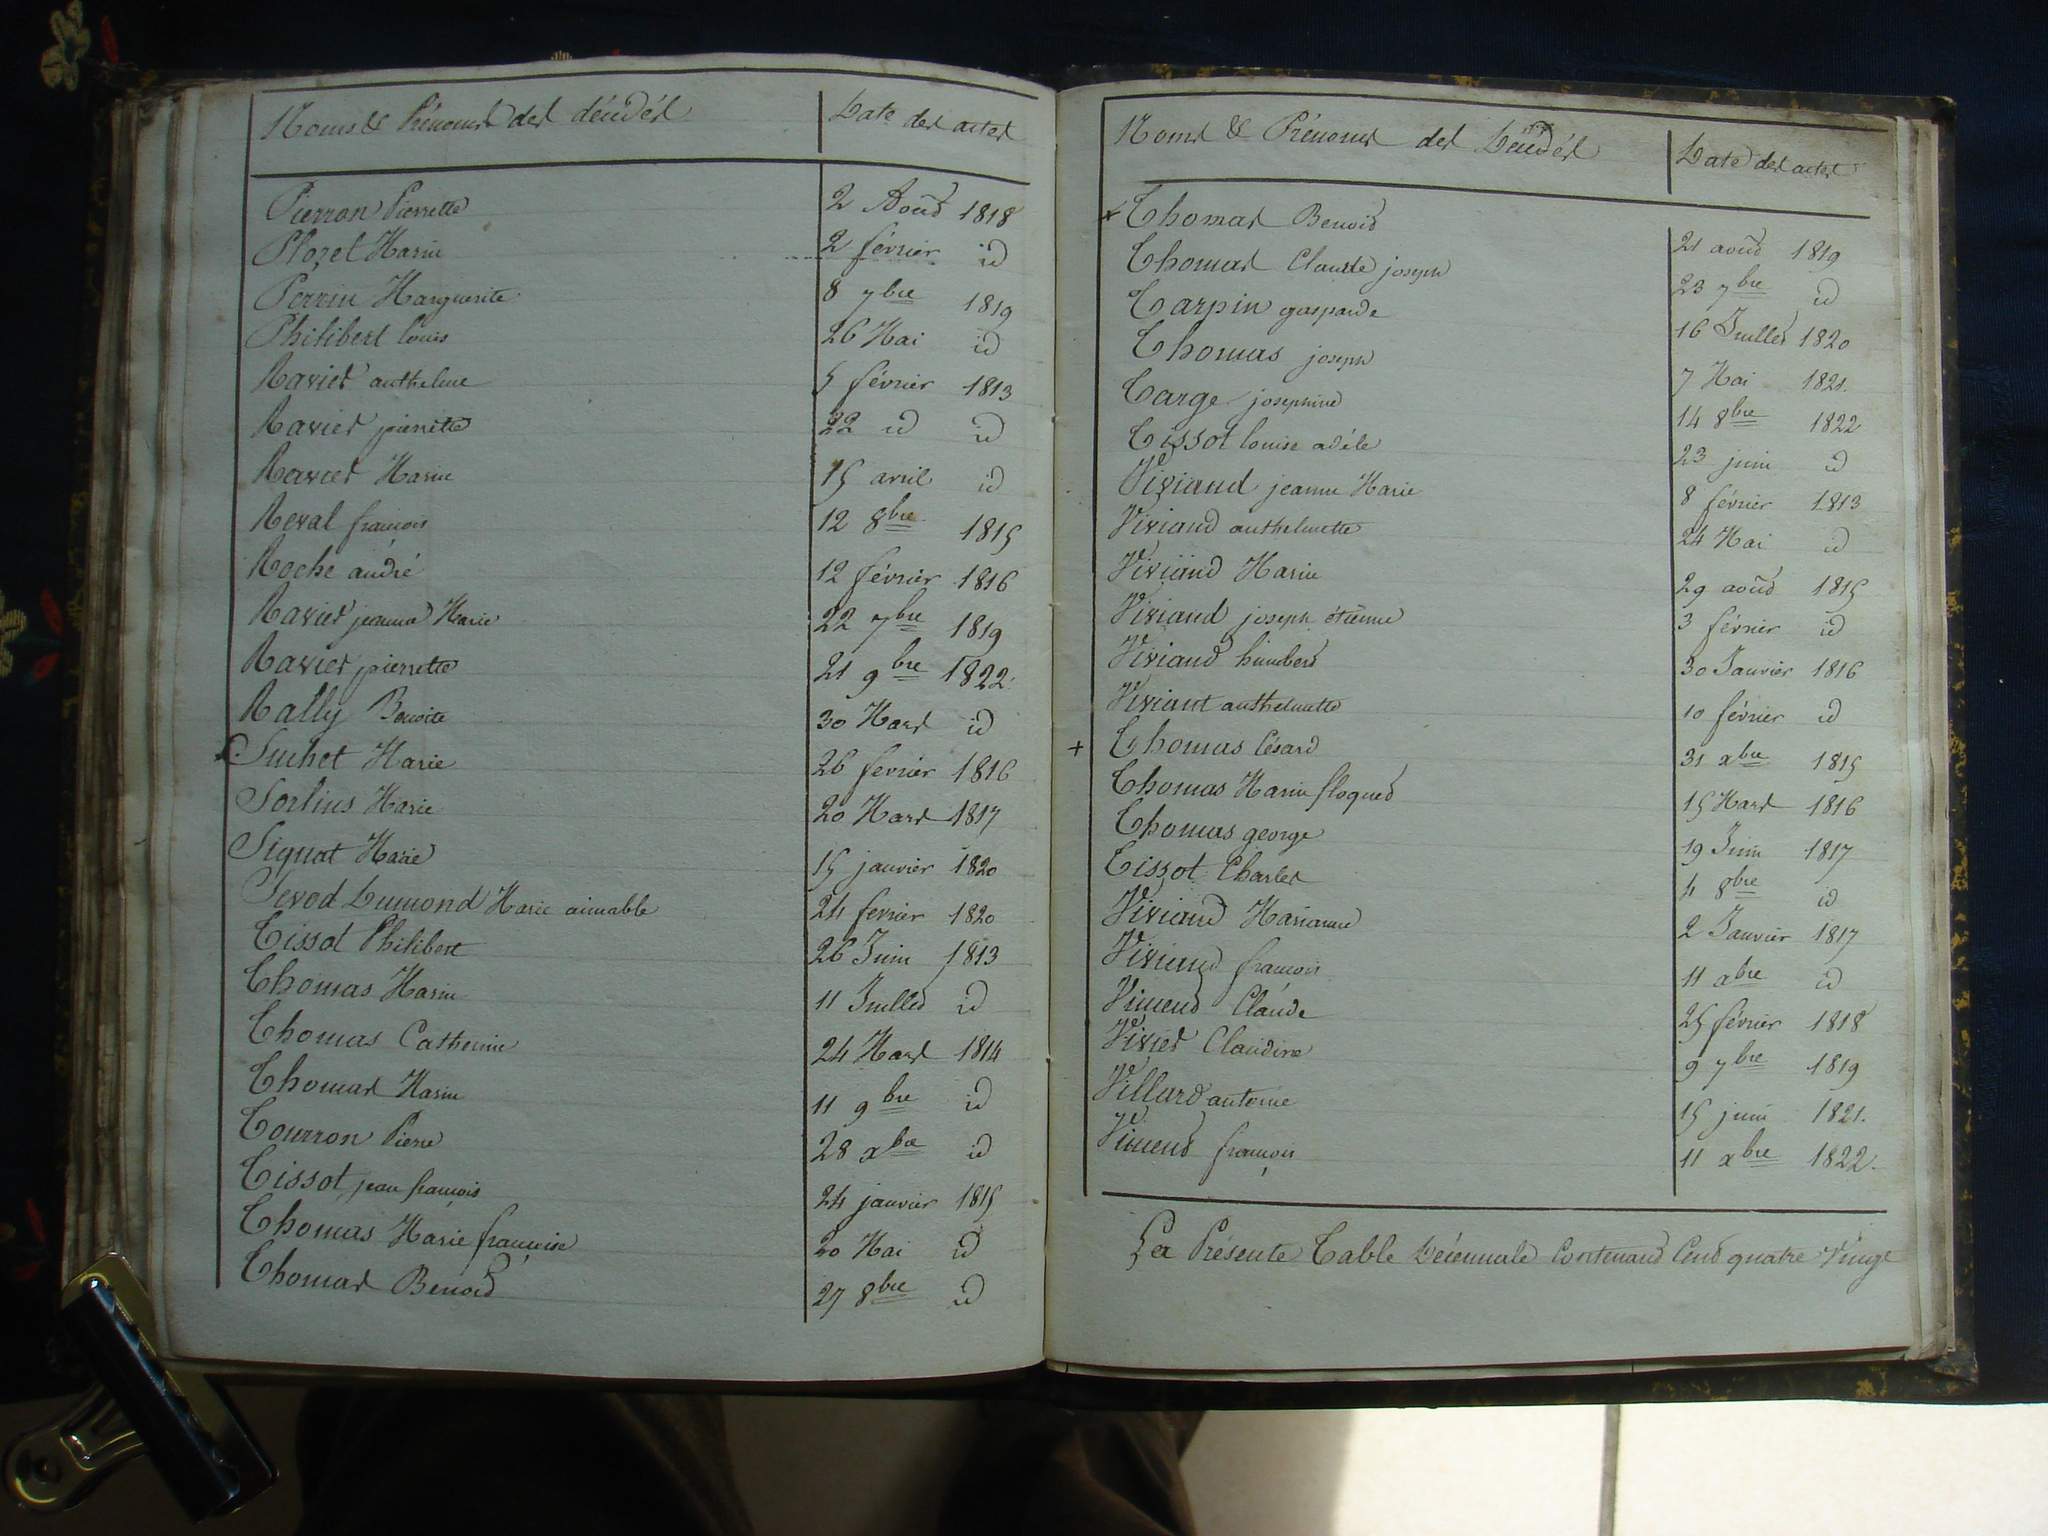 Noms & Prénoms des décédés Date des actes
Pierron Pierrette 2 Aout 1818
Plozet Marie 2 février id
Perrin Marguerite 8 7bre 1819
Philibert louis 26 Mai id
Ravier anthelme 5 février 1813
Ravier pierrette 22 id id
Ravier Marie 15 avril id
Reval françois 12 8bre 1815
Roche andré 12 février 1816
Ravier jeanne Marie 22 7bre 1819
Ravier pierrette 21 9bre 1822
Rally Benoite 30 Mars id
Suchet Marie 26 fevrier 1816
Sorlins Marie 20 Mars 1817
Signat Marie 15 janvier 1820
Sevod Dumond Marie aimable 24 fevrier 1820
Tissot Philibert 26 Juin 1813
Thomas Marie 11 Juillet id
Thomas Catherine 24 Mars 1814
Thomas Marie 11 9bre id
Tourron Pierre 28 xbre id
Tissot jean françois 24 janvier 1815
Thomas Marie françoise 20 Mai id
Thomas Benoit 27 8bre id
Noms & Prénoms des Décédés Date des actes
+ Thomas Benoit 21 aout 1819
Thomas Claude joseph 23 7bre id
Tarpin gasparde 16 Juillet 1820
Thomas joseph 7 Mai 1821.
Targe josephine 14 8bre 1822
Tissot louise adéle 23 juin id
Viviand jeanne Marie 8 février 1813
Viviand anthelmette 24 Mai id
Viviand Marie 29 aout 1815
Viviand joseph étienne 3 février id
Viviand humbert 30 Janvier 1816
Viviant anthelmette 10 février id
+ Thomas Césard 31 xbre 1815
Thomas Marie floqued 15 Mars 1816
Thomas george 19 Juin 1817
Tissot Charles 4 8bre id
Viviand Marianne 2 Janvier 1817
Viviand françois 11 xbre id
Vimend Claude 25 février 1818
Vivier Claudine 9 7bre 1819
Villard antoine 15 juin 1821.
Vimend françois 11 xbre 1822.
La Présente Table Décennale Contenand Cent quatre Vingt